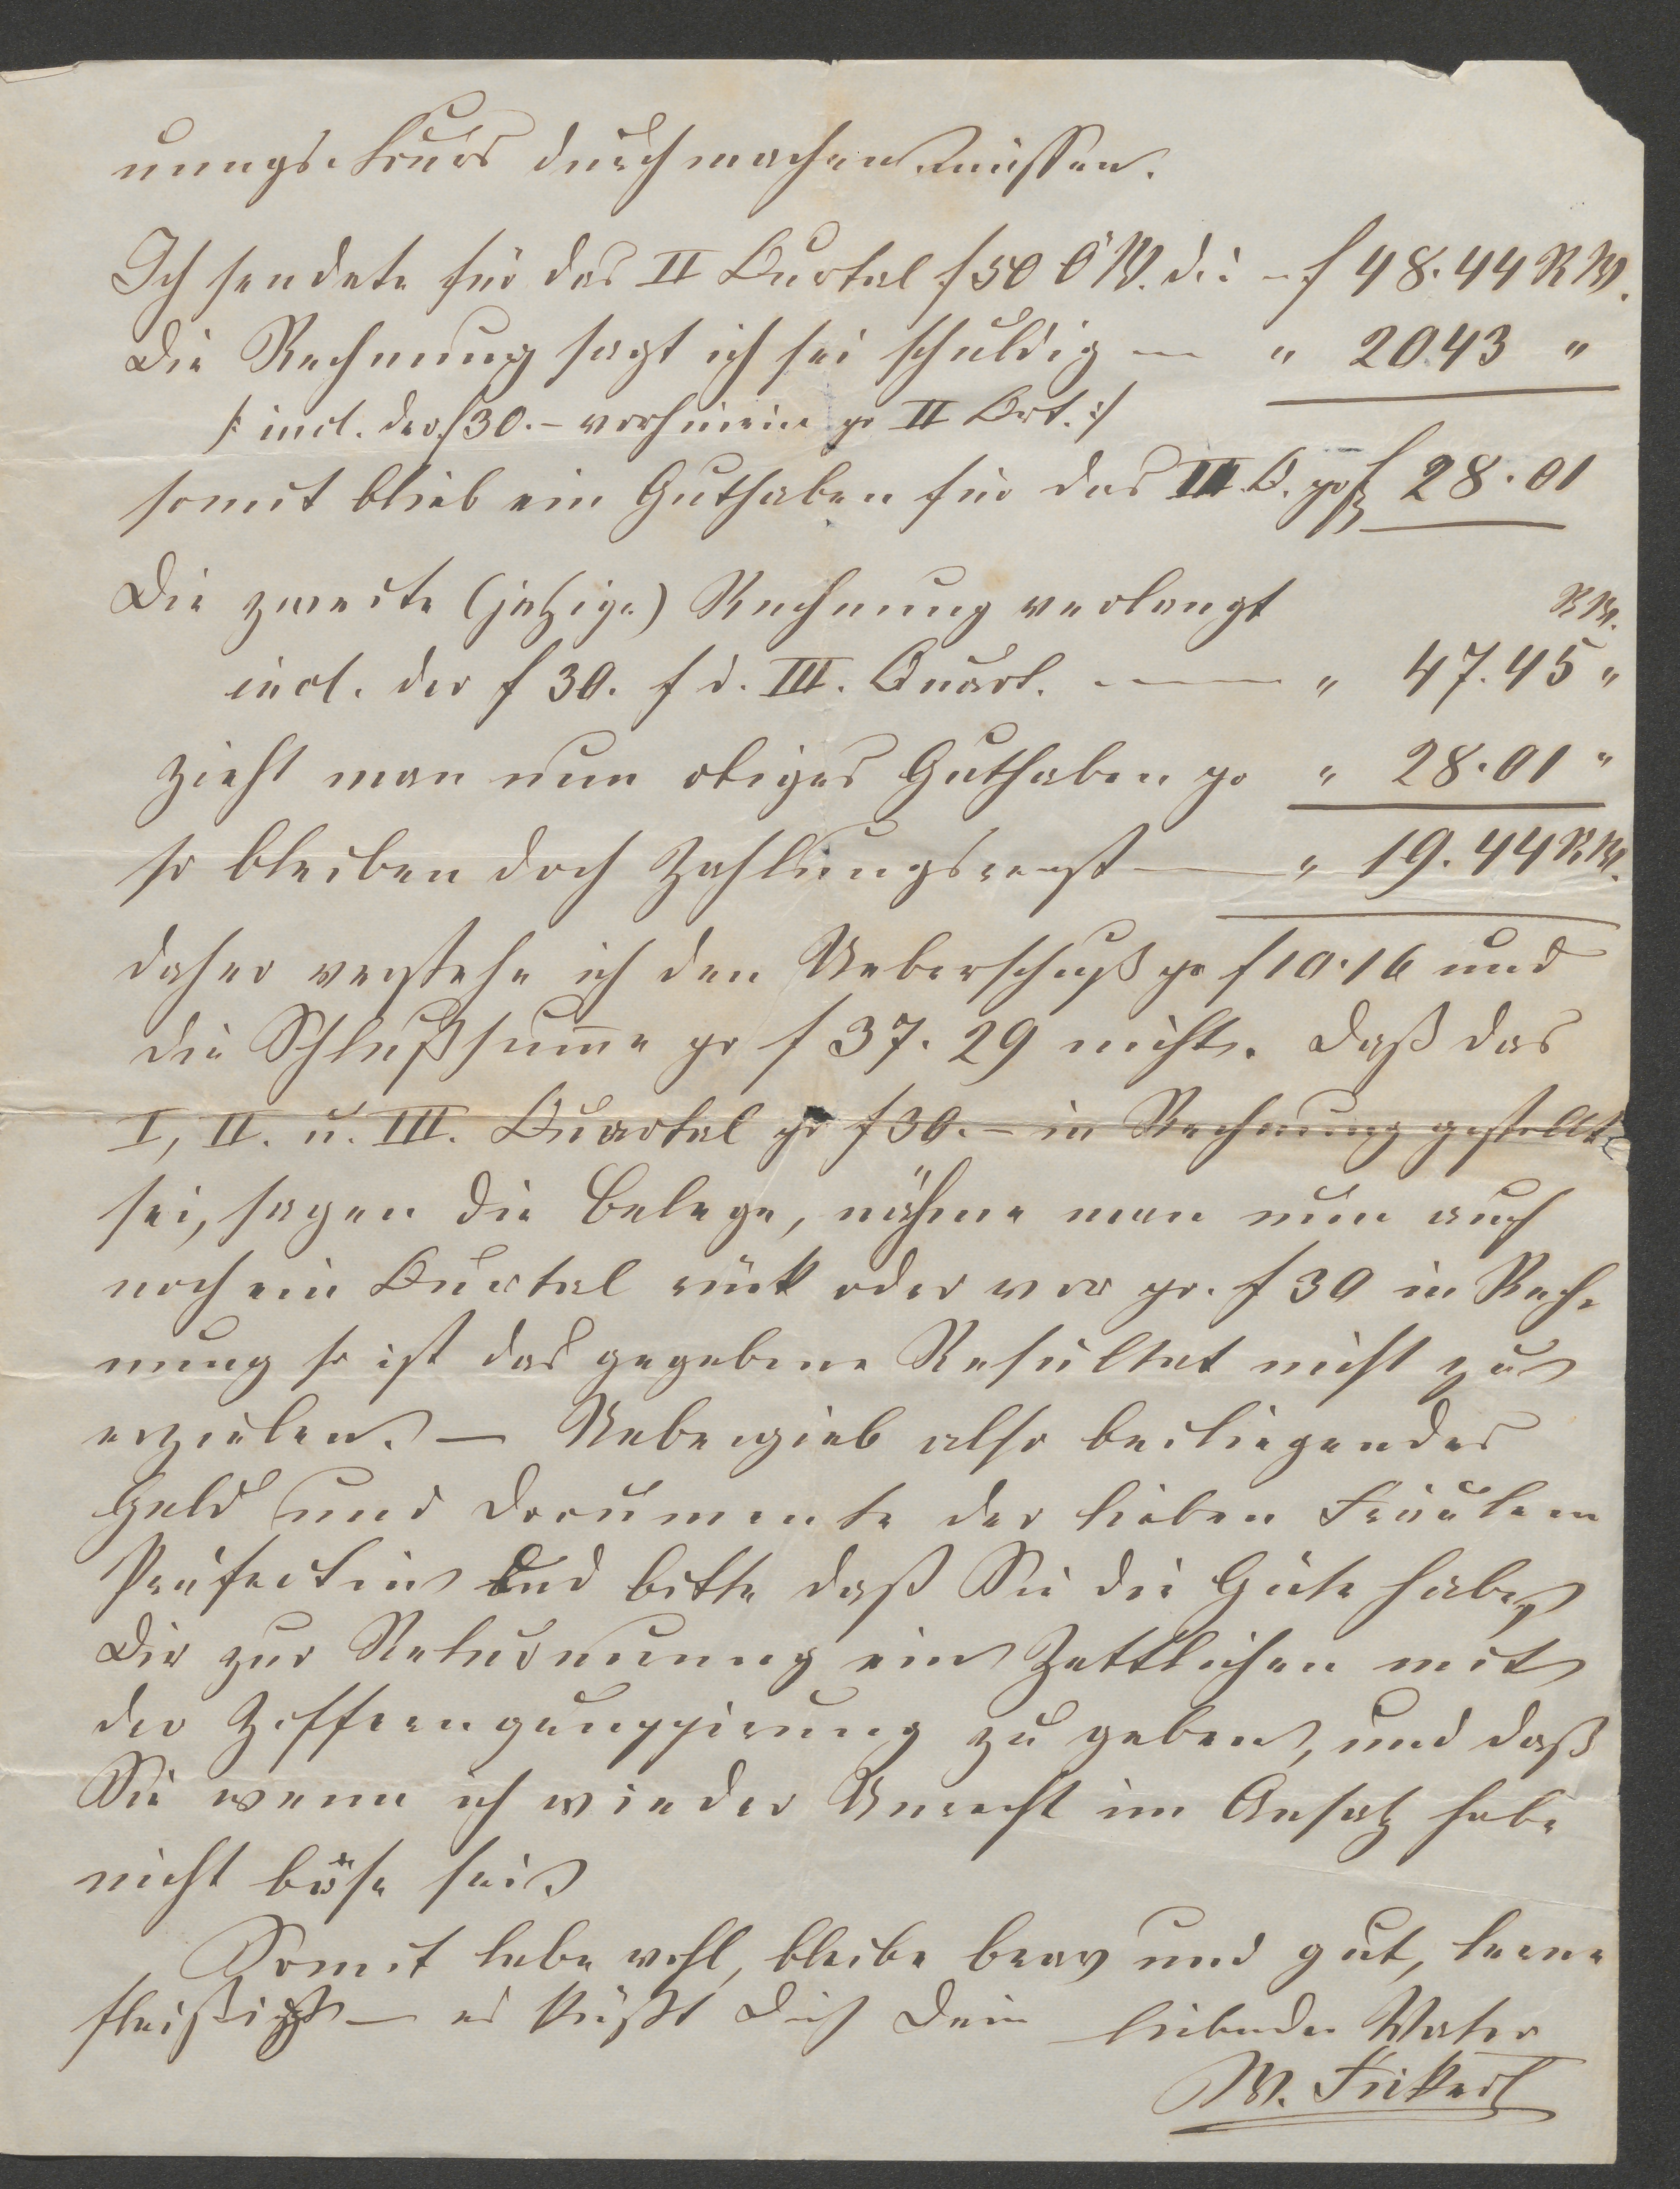 nungs-Kurs durchmachen müssen.
Ich sendete für das II Quartal f 50 Ö W. d. i. – f 48.44 R W.
Die Rechnung sagt ich sei schuldig — " 20.43 "
/: incl. der f 30.– vorhinein pr II Qrt. :/
somit blieb ein Guthaben für das III. Q. pr f 28.01
Die zweite (jetzige) Rechnung verlangt R W.
incl. der f 30. f d. III. Quart. —— " 47.45 "
zieht man nun obiges Guthaben pr " 28.01 "
so bleiben doch Zahlungsrest —— " 19.44 R W.
daher verstehe ich den Ueberschuß pr f 10.16 und
die Schlußsum̅e pr f 37.29 nicht. Daß das
I, II. u. III. Quartal pr f 30.– in Rechnung gestellt
sei, sagen die Belege, nähme man nun auch
noch ein Quartal rück oder vor pr. f 30 in Rech-
nung so ist das gegebene Resultat nicht zu
erzielen. — Uebergieb also beiliegendes
Geld und Documente der lieben Fräulein
Präfectin und bitte daß Sie die Güte habe
Dir zur Retournirung ein Zettlichen mit
der Zifferngruppirung zu geben, und daß
Sie wenn ich wieder Unrecht im Ansatz habe
nicht böse sei.
Somit lebe wohl, bleibe brav und gut, lerne
fleißig — es küßt Dich Dein liebender Vater
W.